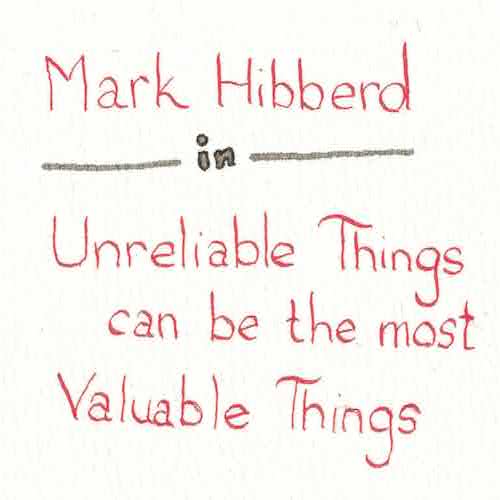 Mark Hibberd
in
Unreliable Things
can be the most
Valuable Things